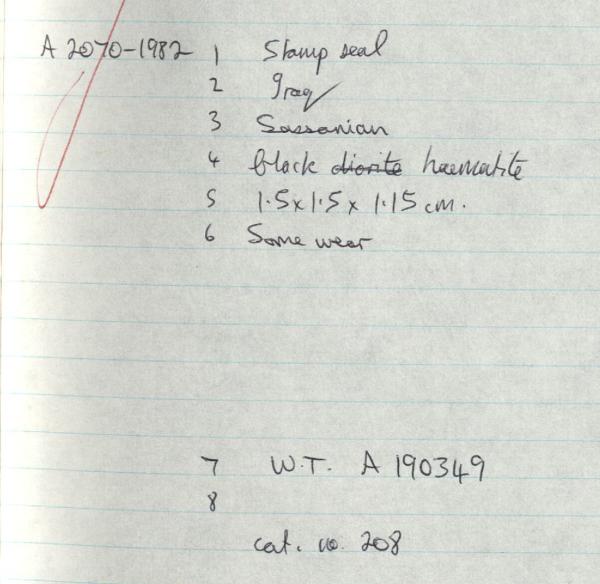 A 2070-1982 1 Stamp seal
2 Iraq
3 Sassanian
4 black diorite haematite
5 1.5x1.5x 1.15 cm.
6 Some wear
7 W.T. A 190349
8
cat. no. 208